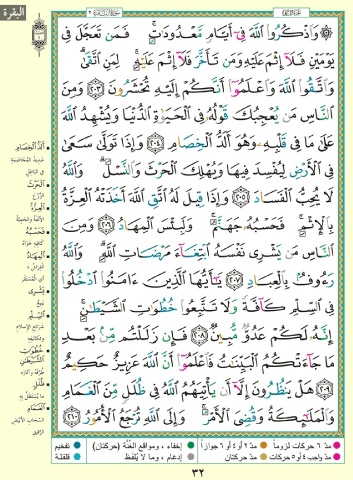 البقرة
۞ وَاذْكُرُوا اللَّهَ فِي أَيَّامٍ مَعْدُودَاتٍ ۚ فَمَن تَعَجَّلَ فِي
يَوْمَيْنِ فَلَا إِثْمَ عَلَيْهِ وَمَن تَأَخَّرَ فَلَا إِثْمَ عَلَيْهِ ۚ لِمَنِ اتَّقَىٰ ۗ
وَاتَّقُوا اللَّهَ وَاعْلَمُوا أَنَّكُمْ إِلَيْهِ تُحْشَرُونَ ٢٠٣ وَمِنَ
النَّاسِ مَن يُعْجِبُكَ قَوْلُهُ فِي الْحَيَوٰةِ الدُّنْيَا وَيُشْهِدُ اللَّهَ
عَلَىٰ مَا فِي قَلْبِهِ وَهُوَ أَلَدُّ الْخِصَامِ ٢٠٤ وَإِذَا تَوَلَّىٰ سَعَىٰ
فِي الْأَرْضِ لِيُفْسِدَ فِيهَا وَيُهْلِكَ الْحَرْثَ وَالنَّسْلَ ۗ وَاللَّهُ
لَا يُحِبُّ الْفَسَادَ ٢٠٥ وَإِذَا قِيلَ لَهُ اتَّقِ اللَّهَ أَخَذَتْهُ الْعِزَّةُ
بِالْإِثْمِ ۚ فَحَسْبُهُ جَهَنَّمُ ۚ وَلَبِئْسَ الْمِهَادُ ٢٠٦ وَمِنَ
النَّاسِ مَن يَشْرِي نَفْسَهُ ابْتِغَاءَ مَرْضَاتِ اللَّهِ ۗ وَاللَّهُ
رَءُوفٌ بِالْعِبَادِ ٢٠٧ يَٰأَيُّهَا الَّذِينَ ءَامَنُوا ادْخُلُوا
فِي السِّلْمِ كَافَّةً وَلَا تَتَّبِعُوا خُطُوَٰتِ الشَّيْطَٰنِ ۚ
إِنَّهُ لَكُمْ عَدُوٌّ مُّبِينٌ ٢٠٨ فَإِن زَلَلْتُم مِّن بَعْدِ
مَا جَاءَتْكُمُ الْبَيِّنَٰتُ فَاعْلَمُوا أَنَّ اللَّهَ عَزِيزٌ حَكِيمٌ
٢٠٩ هَلْ يَنظُرُونَ إِلَّا أَن يَأْتِيَهُمُ اللَّهُ فِي ظُلَلٍ مِّنَ الْغَمَامِ
وَالْمَلَٰئِكَةُ وَقُضِيَ الْأَمْرُ ۚ وَإِلَى اللَّهِ تُرْجَعُ الْأُمُورُ ٢١٠
أَلَدُّ الْخِصَامِ
شديد المخاصمة
في الباطل
الْحَرْثَ
الزرع
الْعِزَّةُ
فَحَسْبُهُ
الْمِهَادُ
يَشْرِي
يبيع
السِّلْمِ
شرائع الإسلام
خُطُوَٰتِ
الشَّيْطَٰنِ
طرقه وآثاره
ظُلَلٍ
ما يستظل به
الْغَمَامِ
السحاب الأبيض
الرقيق
مد ٦ حركات لزوماً
مد ٢ أو ٤ أو ٦ جوازاً
إخفاء، ومواقع الغنّة (حركتان)
تفخيم
مد واجب ٤ أو ٥ حركات
مد حركتان
إدغام، وما لا يُلفظ
قلقلة
٣٢